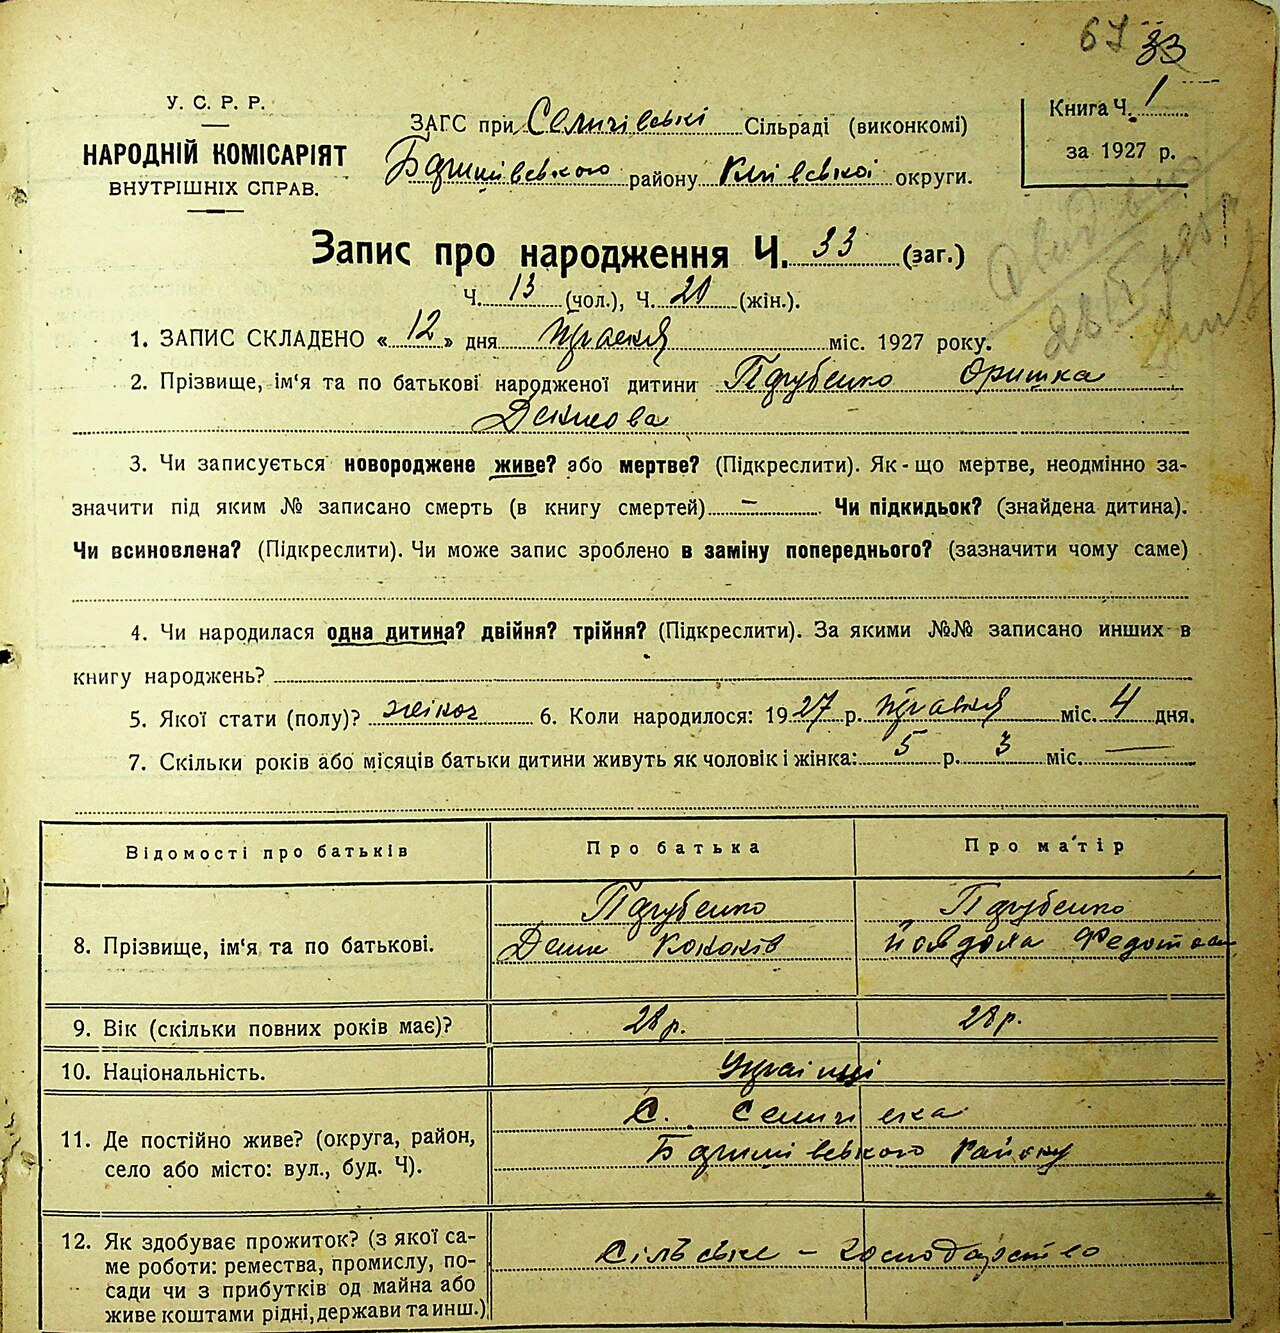 67 33
У. С. Р. Р.
НАРОДНІЙ КОМІСАРІЯТ
ВНУТРІШНІХ СПРАВ.
ЗАГС при Селичівські Сільраді (виконкомі)
Баришівського району Київської округи.
Книга Ч. 1
за 1927 р.
Запис про народження Ч. 33 (заг.)
Ч. 13 (чол.), Ч. 20 (жін.).
1. ЗАПИС СКЛАДЕНО « 12 » дня Травня міс. 1927 року.
2. Прізвище, ім‘я та по батькові народженої дитини Оришка
3. Чи записується новороджене живе? або мертве? (Підкреслити). Як-що мертве, неодмінно за-
значити під яким № записано смерть (в книгу смертей) — Чи підкидьок? (знайдена дитина).
Чи всиновлена? (Підкреслити). Чи може запис зроблено в заміну попереднього? (зазначити чому саме)
4. Чи народилася одна дитина? двійня? трійня? (Підкреслити). За якими №№ записано инших в
книгу народжень?
5. Якої стати (полу)? жіноч 6. Коли народилося: 1927 р. Травня міс. 4 дня.
7. Скільки років або місяців батьки дитини живуть як чоловік і жінка: 5 р. 3 міс. —
Відомості про батьків Про батька Про матір
8. Прізвище, ім‘я та по батькові.
Федотова
9. Вік (скільки повних років має)? 28 р. 28 р.
10. Національність. Українці
11. Де постійно живе? (округа, район, село або місто: вул., буд. Ч). С. Селичівка
Баришівського Району
12. Як здобуває прожиток? (з якої са-
ме роботи: ремества, промислу, по-
сади чи з прибутків од майна або
живе коштами рідні, держави та инш.)
Сільське – господарство